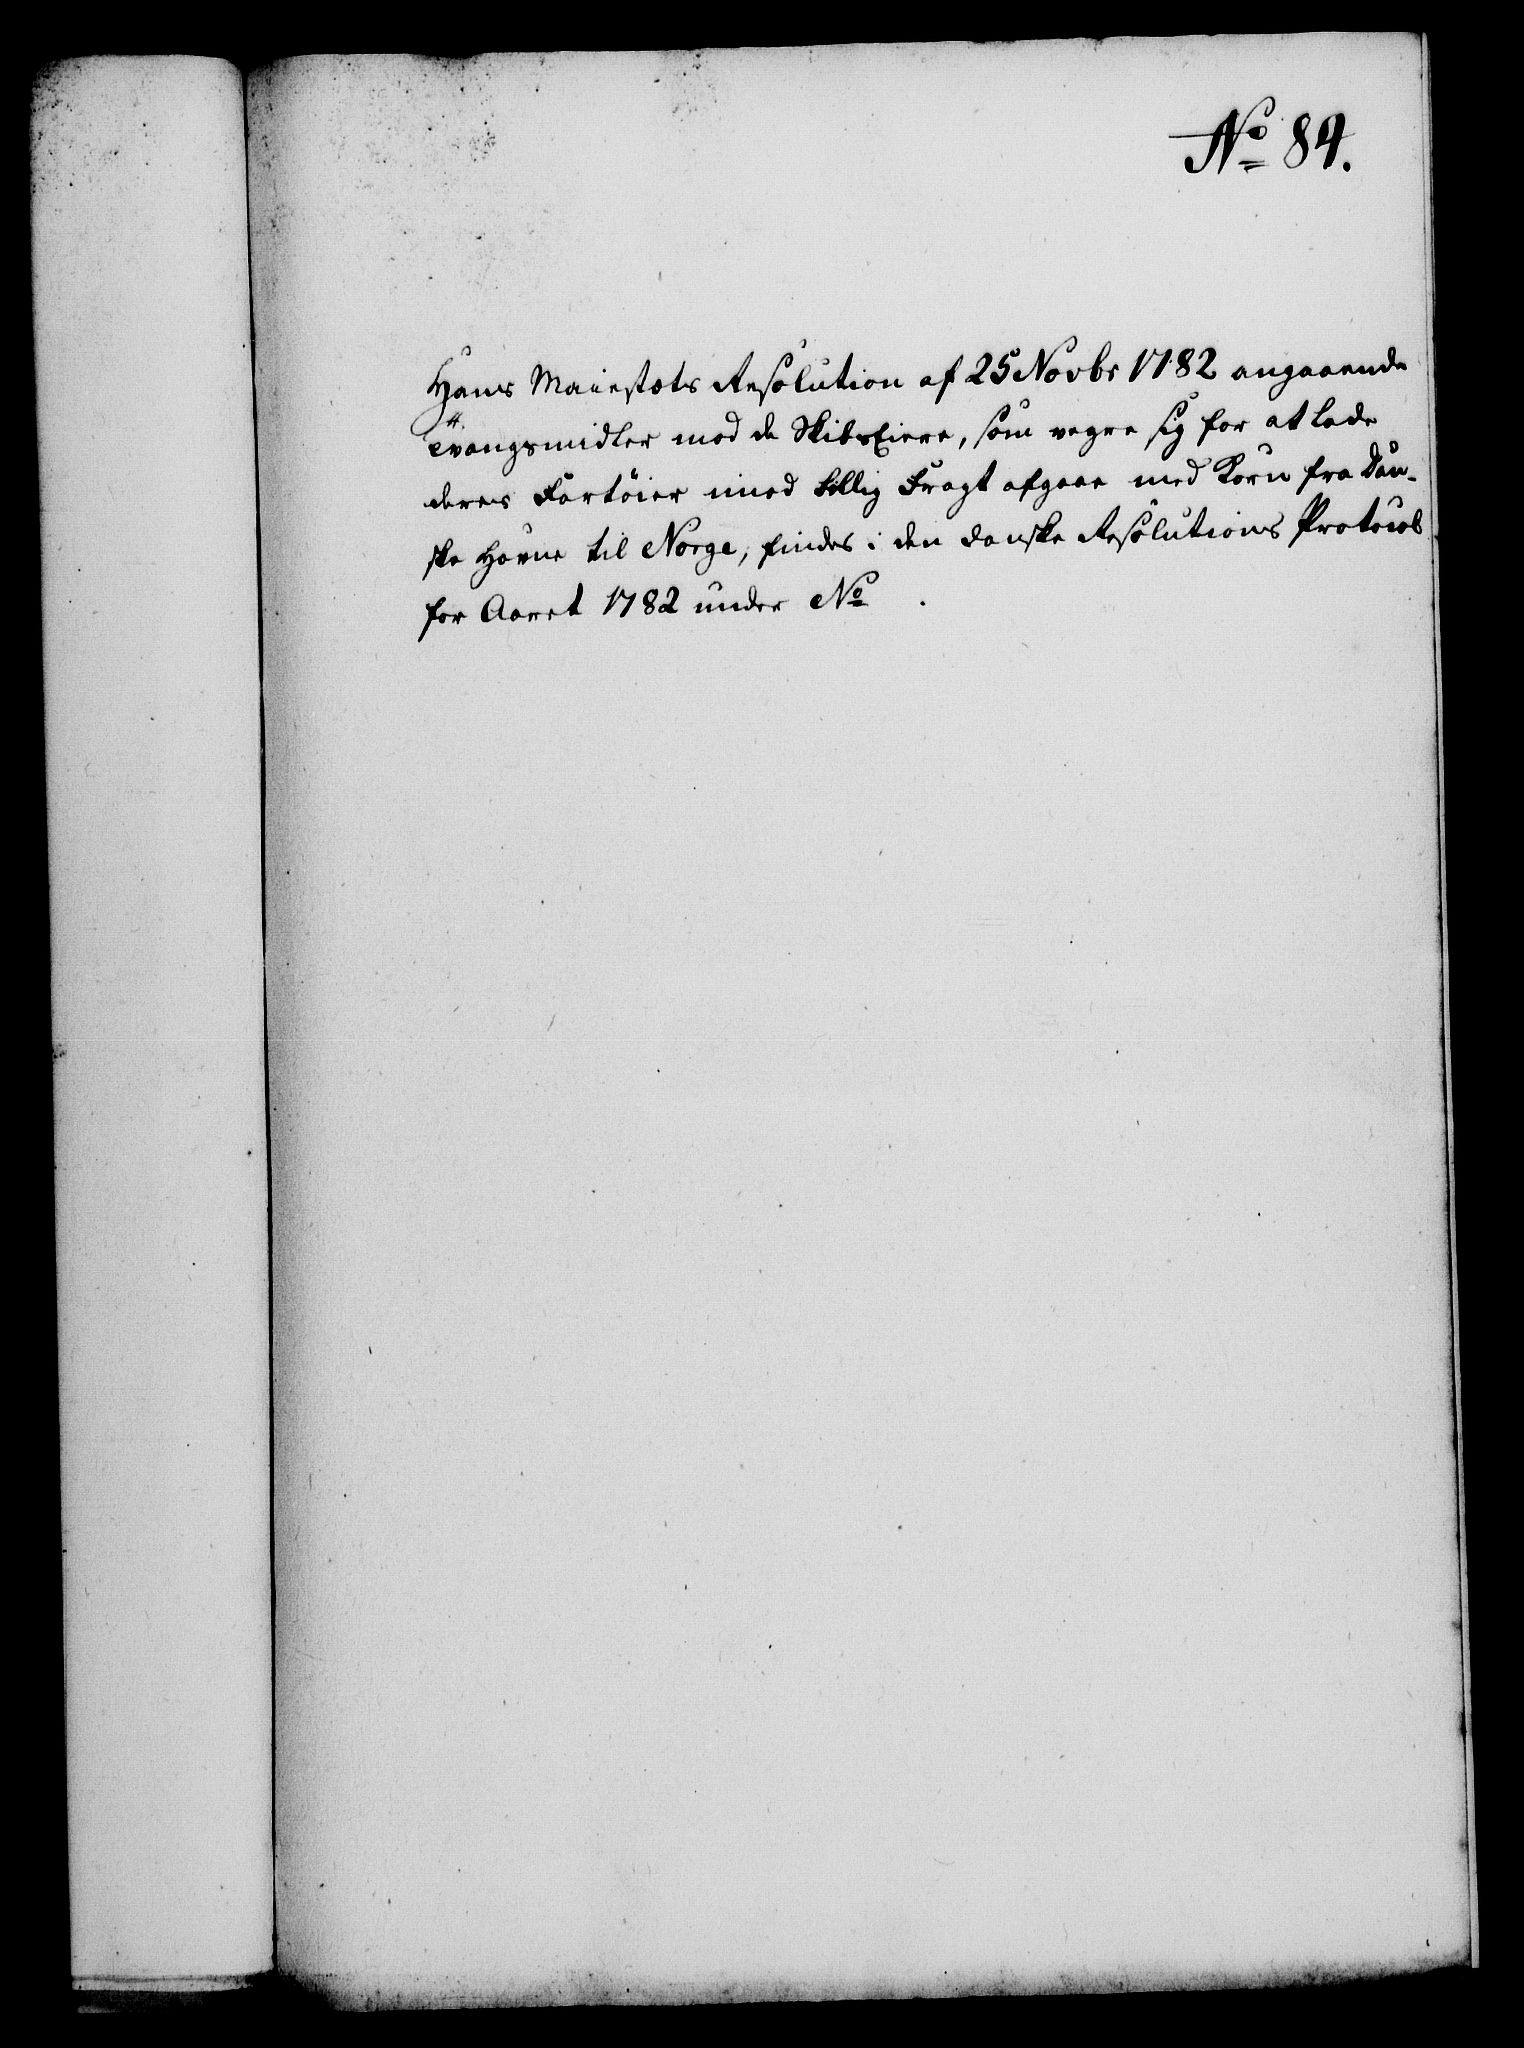 No 84.
Hans Maiestæts Resolution af 25 Novbr 1782 angaaende
Tvangsmidler mod de SkibsEiere, som vegre sig for at lade
deres Fartöier imod billig Fragt afgaae med Korn fra Dan-
ske Havne til Norge, findes i den danske Resolutions Protocol
for Aaret 1782 under No .